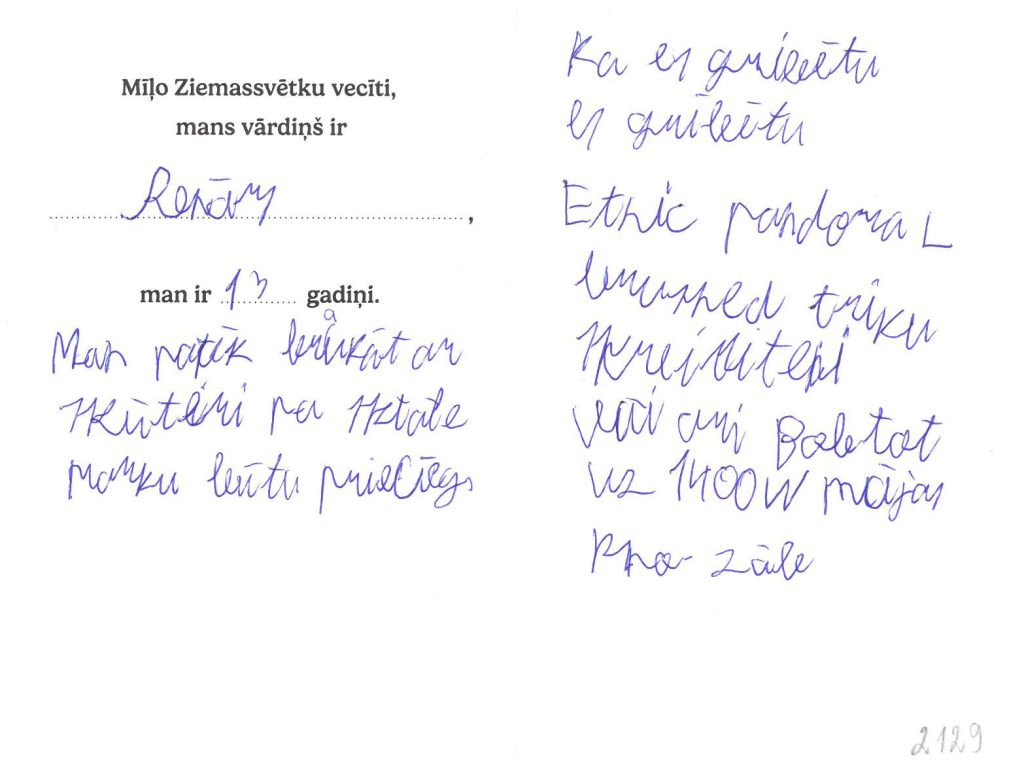 Mīļo Ziemassvētku vecīti,
mans vārdiņš ir
Renārs,
man ir 13 gadiņi.
Man patīk braukāt ar
skūteri pa
parku būtu priecīgs
Ka es gribētu
es gribētu
Ethic pandora L
triku
skreiriteni
vai arī Boletat
uz 1400W mājas
zāle
2129